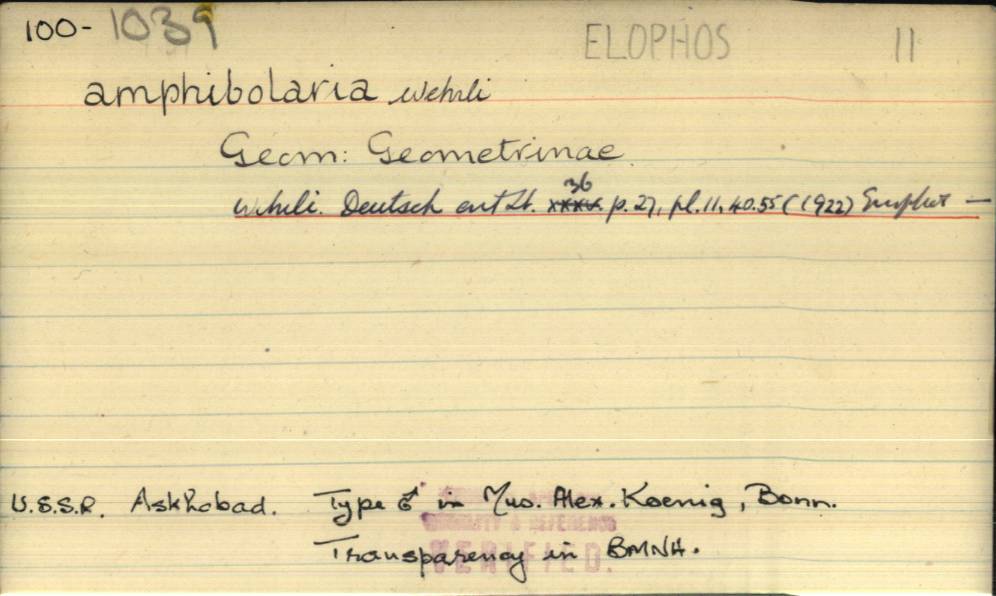 100- 1039 ELOPHOS 11
amphibolaria Wehrli
Geom: Geometrinae
Wehrli. Deutsch ent Zt. 36 p. 27, pl. 11, 40.55 (1922) —
U.S.S.R. Askhabad. Type ♂ in Mus. Alex. Koenig, Bonn.
& REFERENCE
Transparency in BMNH.
VERIFIED.